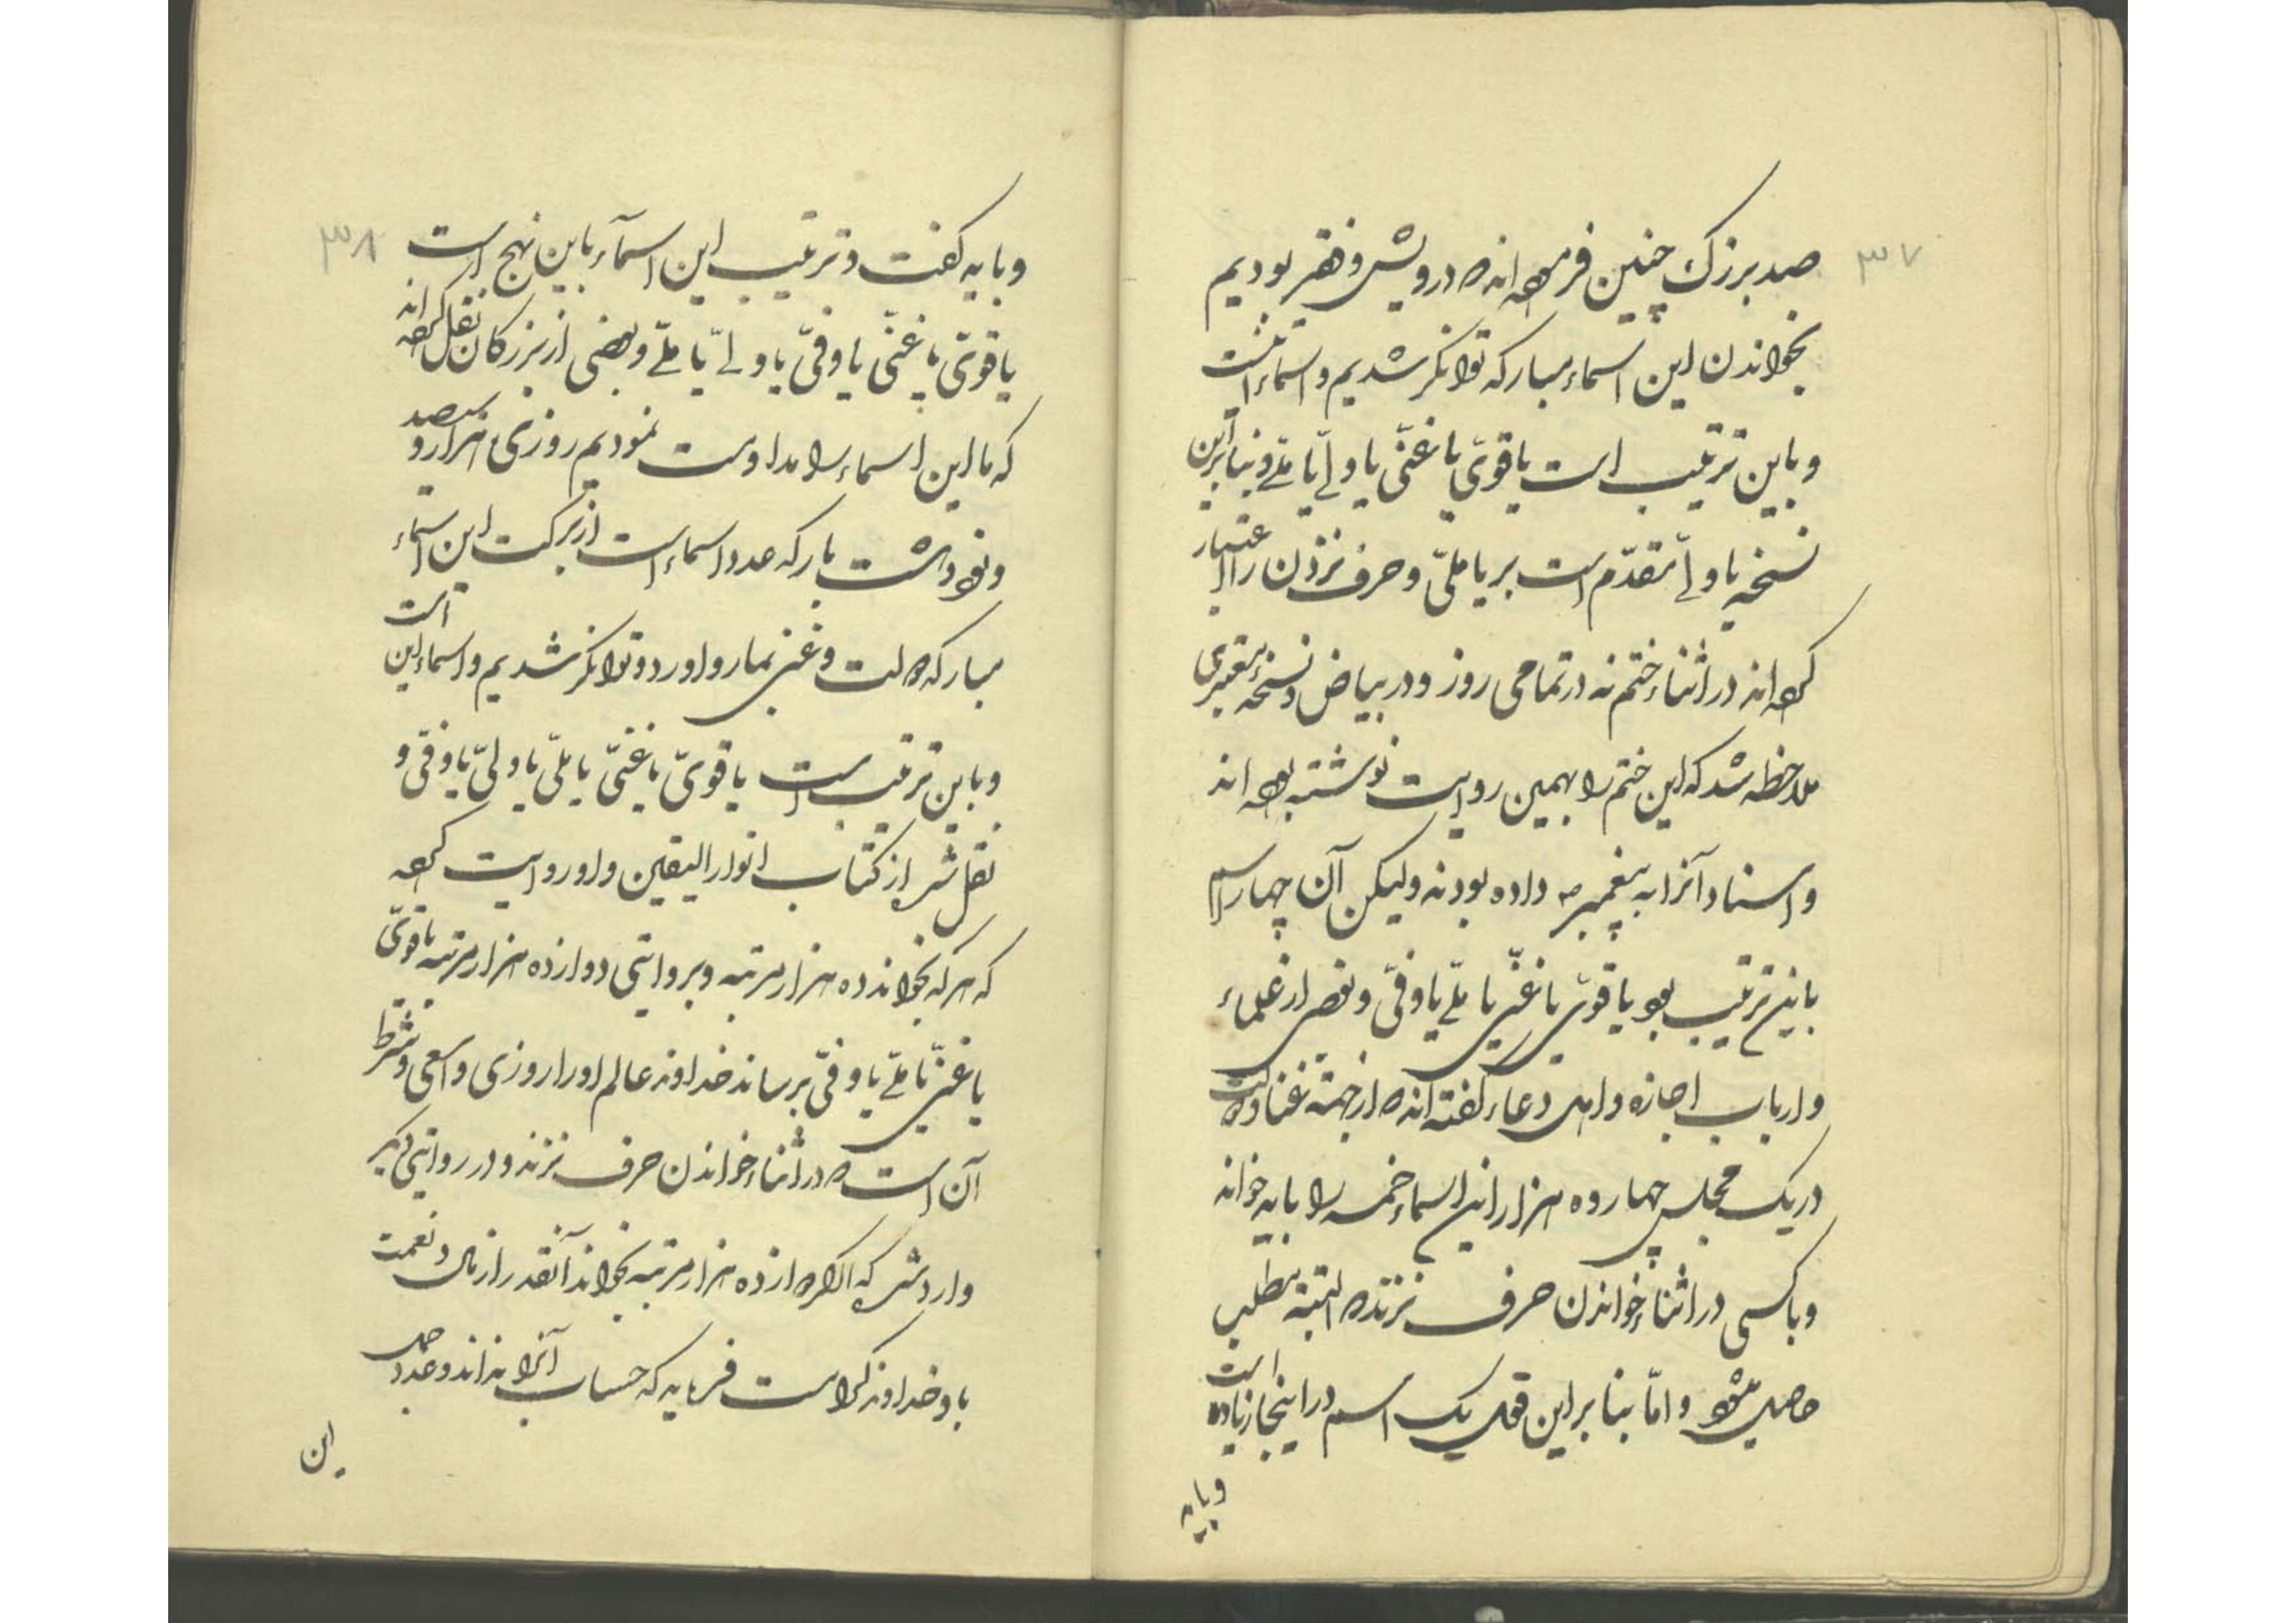 ۳۷
صد بزرک چنین فرموده اند که درویش و فقیر بودیم
بخواندن این اسماء مبارکه توانکر شدیم و اسماء اینست
و باین ترتیب است یا قویّ یا غنیّ یا ولیّ یا ملیّ و بنابراین
نسخه یا ولیّ مقدّم است بر یا ملیّ و حرف نزدن را اعتبار
کرده اند در اثناء ختم نه در تمامی روز و در بیاض و نسخه معتبری
ملاحظه شد که این ختم را بهمین روایت نوشته بوده اند
و اسناد آنرا به پیغمبر ص داده بودند ولیکن آن چهار اسم
باین ترتیب بود یا قویّ یا غنیّ یا ملیّ یا وفیّ و بعضی از علماء
و ارباب اجازه و اهل دعاء گفته اند که از جهته غنا و دولت
در یک مجلس چهارده هزار این اسماء خمسه را باید خواند
و با کسی در اثناء خواندن حرف نزند که البتّه مطلب
حاصل میشود و امّا بنا بر این قول یک اسم در اینجا زیاده است
و باید
۳۸
و باید گفت و ترتیب این اسمآء باین نهج است
یا قویّ یا غنیّ یا وفیّ یا ولیّ یا ملیّ و بعضی از بزرکان نقل کرده اند
که ما این اسماء را مداومت نمودیم روزی هزار و سیصد
و نود و هشت بار که عدد اسماء است از برکت این اسماء
مبارکه دولت و غنی بما رو اورد و توانکر شدیم و اسماء این است
و باین ترتیب است یا قویّ یا غنیّ یا ملیّ یا ولیّ یا وفیّ و
نقل شد از کتاب انوار الیقین و او روایت کرده
که هر که بخواند ده هزار مرتبه و بروایتی دوازده هزار مرتبه یا قویّ
یا غنیّ یا ملیّ یا وفیّ برساند خداوند عالم او را روزی واسعی و شرط
آن است که در اثناء خواندن حرف نزند و در روایتی دیگر
وارد شد که اگر دوازده هزار مرتبه بخواند آنقدر از مال و نعمت
باو خداوند کرامت فرماید که حساب آنرا نداند و عدد
این